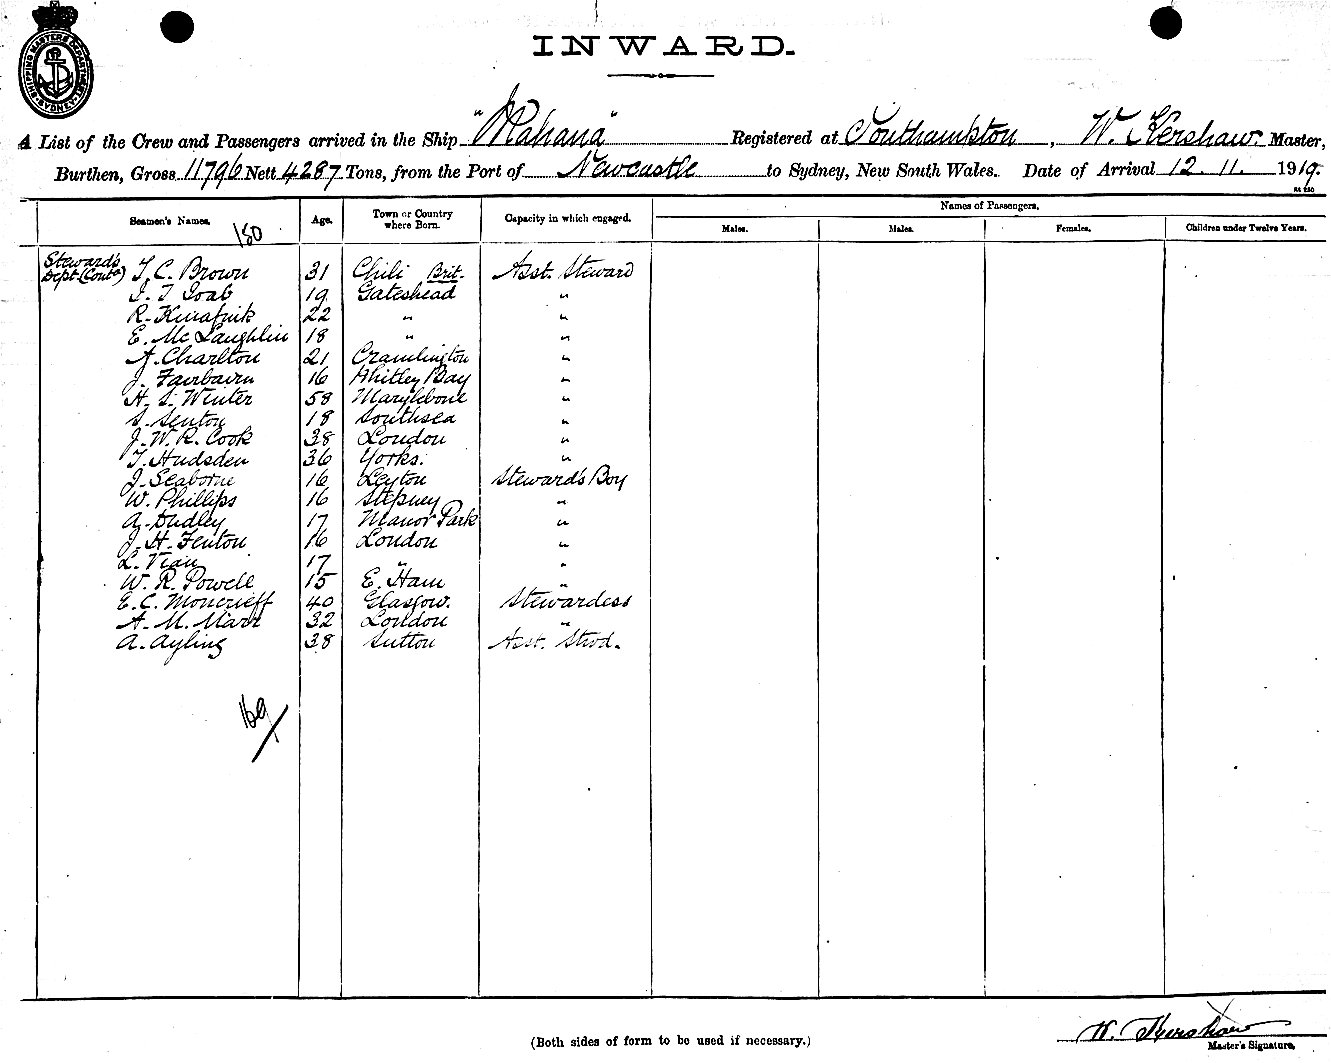 SHIPPING MASTERS DEPARTMENT SYDNEY
INWARD.
A List of the Crew and Passengers arrived in the Ship "Mahana" Registered at Southampton, W. Kershaw. Master,
Burthen, Gross 11796 Nett 4287 Tons, from the Port of Newcastle to Sydney, New South Wales. Date of Arrival 12. 11. 1919.
Seamen's Names. Age. Town or Country where Born. Capacity in which engaged. Names of Passengers.
Males. Males. Females. Children under Twelve Years.
150
Steward's
Dept (Contd) T. C. Brown 31 Chili Brit. Asst. Steward
19 Gateshead "
R. 22 " "
E. McLaughlin 18 " "
A. Charlton 21 Cramlington "
J. Fairbairn 16 Whitley Bay "
H. S. Winter 58 Marylebone "
S. Senton 18 Southsea "
J. W. R. Cook 38 London "
T. Hudsden 36 Yorks. "
J. Seaborne 16 Leyton Steward's Boy
W. Phillips 16 Stepney "
A. Dudley 17 Manor Park "
J. H. Fenton 16 London "
L. Vian 17 " "
W. R. Powell 15 E. Ham "
E. C. Moncrieff 40 Glasgow. Stewardess
A. M. Marr 32 London "
A. Ayling 38 Sutton Asst. Stwd.
169
W. Kershaw
Master's Signature.
(Both sides of form to be used if necessary.)